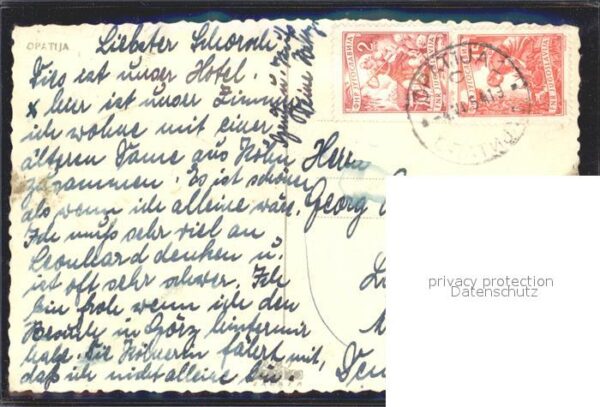 OPATIJA
Liebster Schorch.
Dies ist unser Hotel.
x hier ist unser Zimmer
ich wohne mit einer
älteren Dame aus Köln
zusammen. Es ist schöner
als wenn ich alleine wäre.
Ich muß sehr viel an
Leonhard denken u.
ist oft sehr schwer. Ich
bin froh wenn ich den
Besuch in Görz hinter mir
habe. Die Kölnerin fährt mit,
daß ich nicht alleine bin.
Deine
Herrn
Georg
2
FNR JUGOSLAVIJA
FNR JUGOSLAVIJA
OPATIJA
privacy protection
Datenschutz